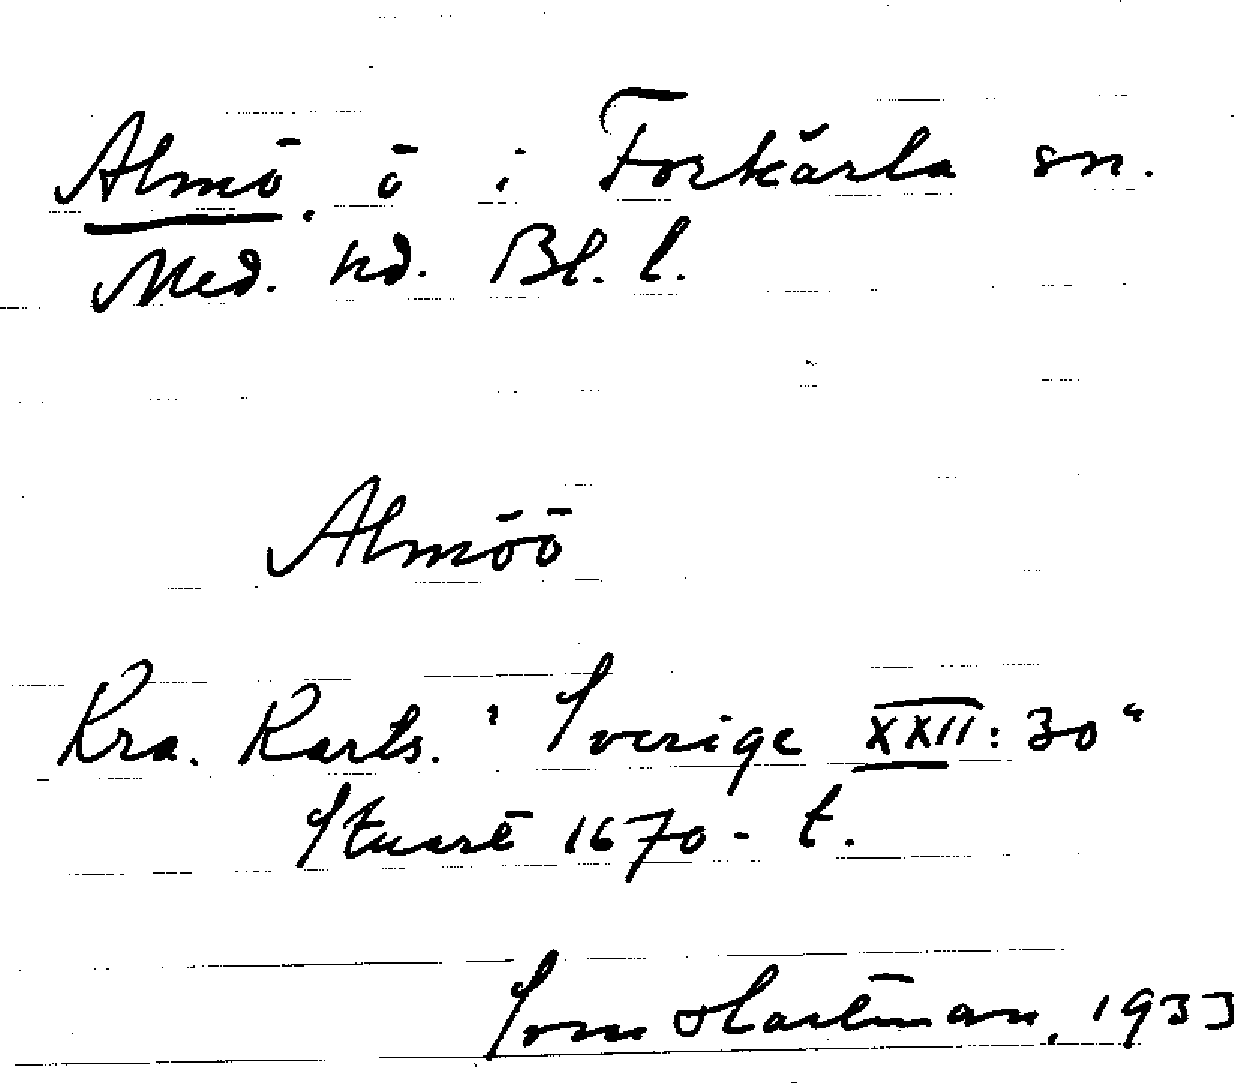 Almö. ö i Förkärla sn.
Med. hd. Bl. l.
Almöö
Kra. Karts. "Sverige XXII: 30"
Stuart 1670-t.
Sven Hartman, 1933